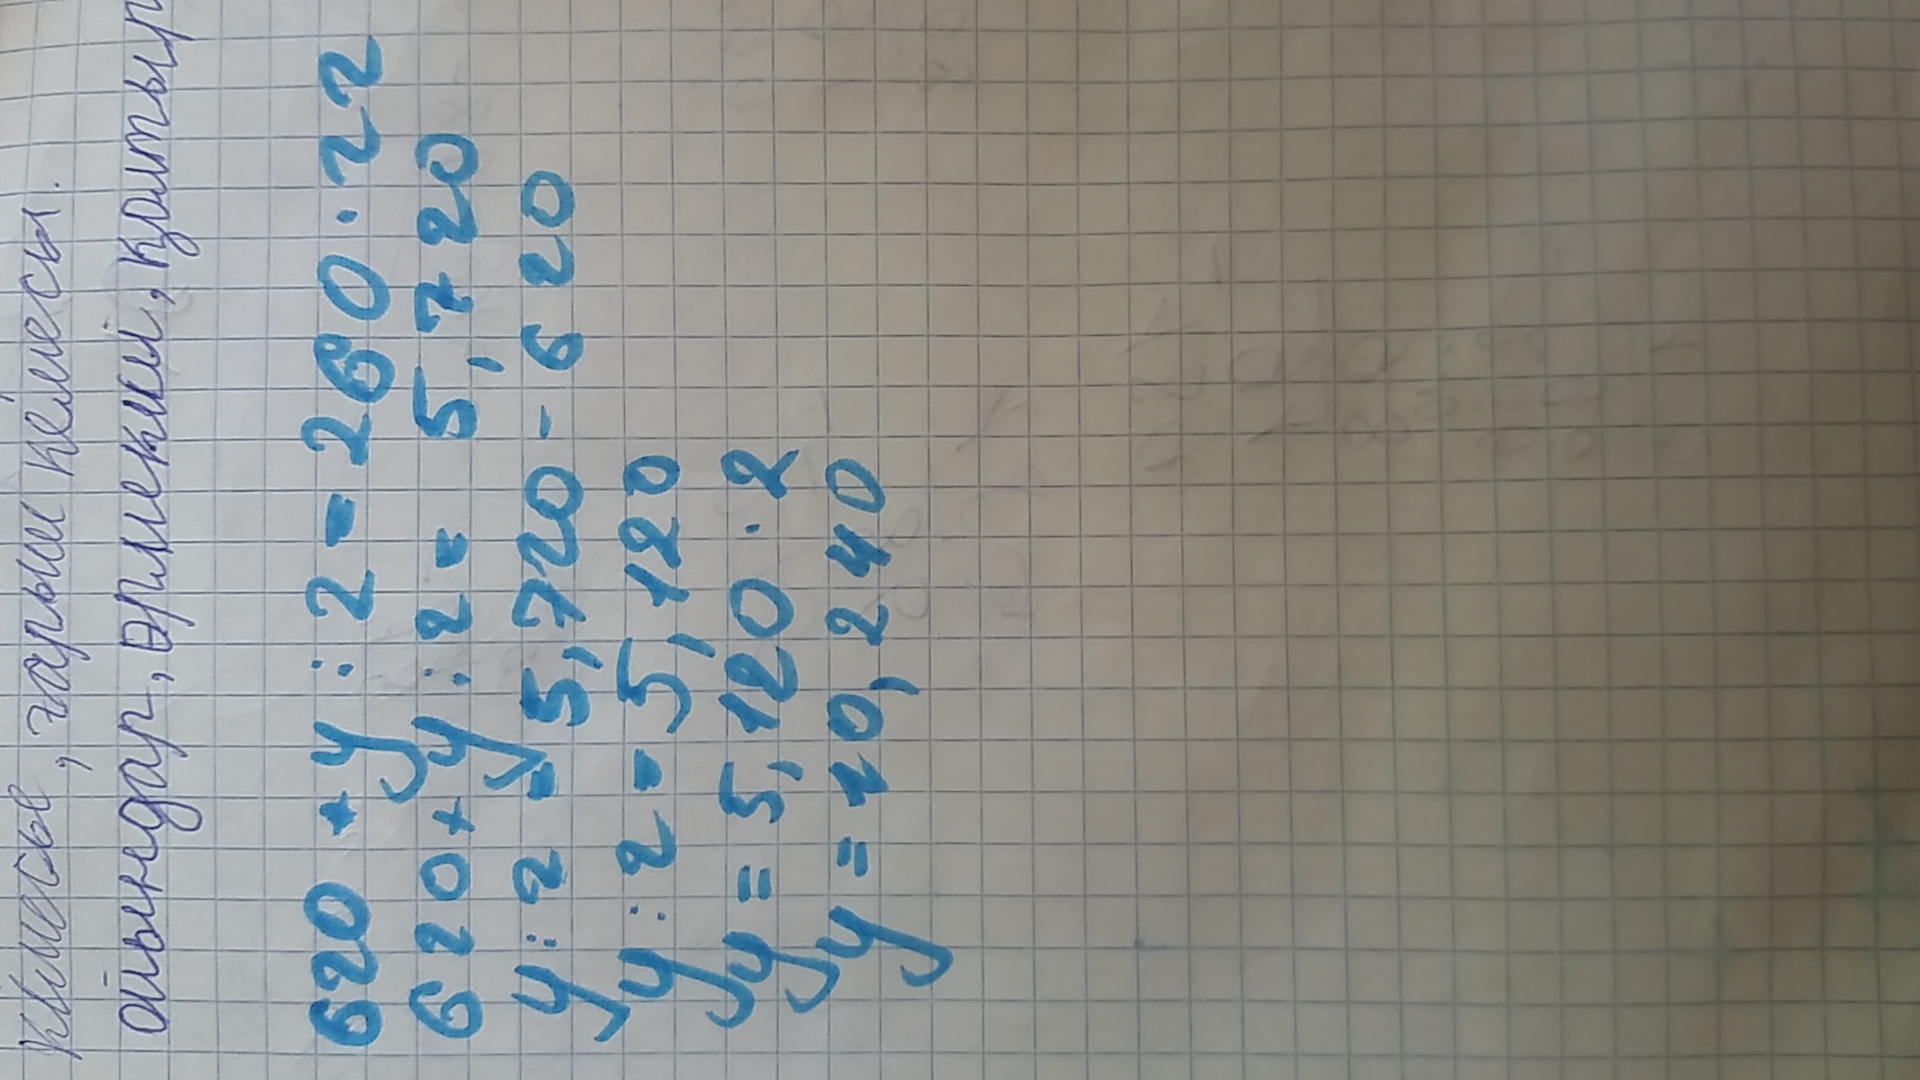 кімесы, зарын кемесы.
ойындар, әрлекки, қолтыр
620 + y : 2 = 260 · 22
620 + y : 2 = 5,720
y : 2 = 5,720 - 620
y : 2 = 5,120
y = 5,120 · 2
y = 10,240